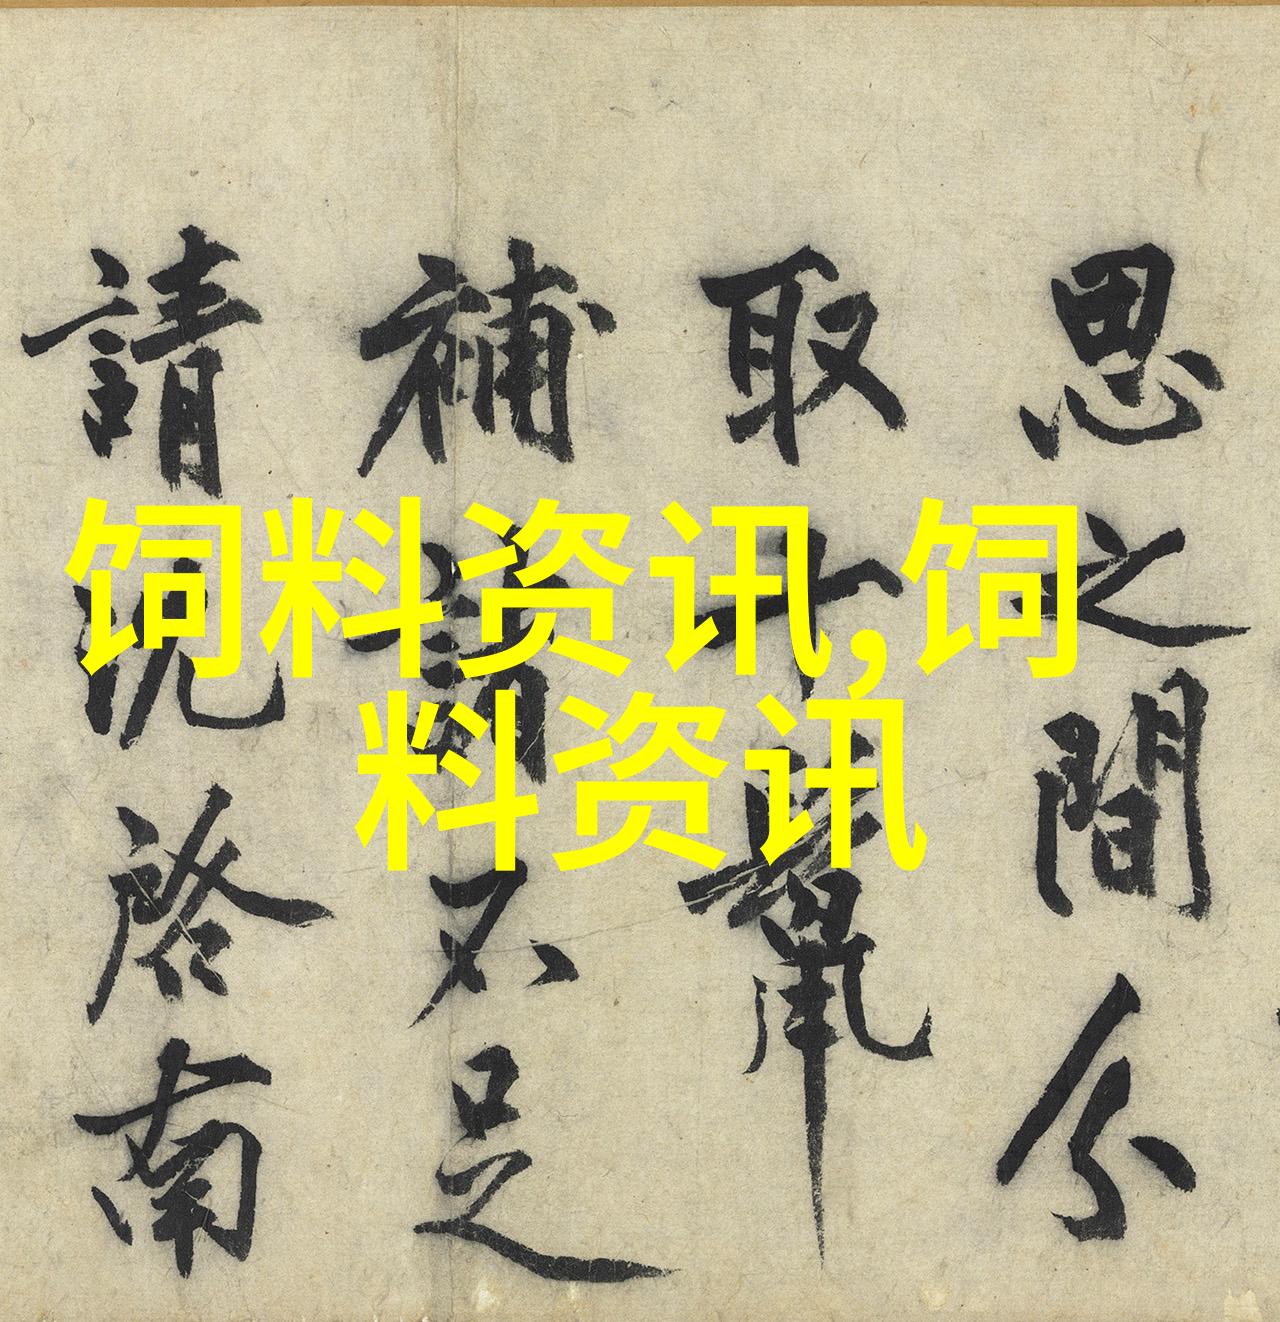 饲料资讯,饲
料资讯
思之間分
取十
補不足
請啓南